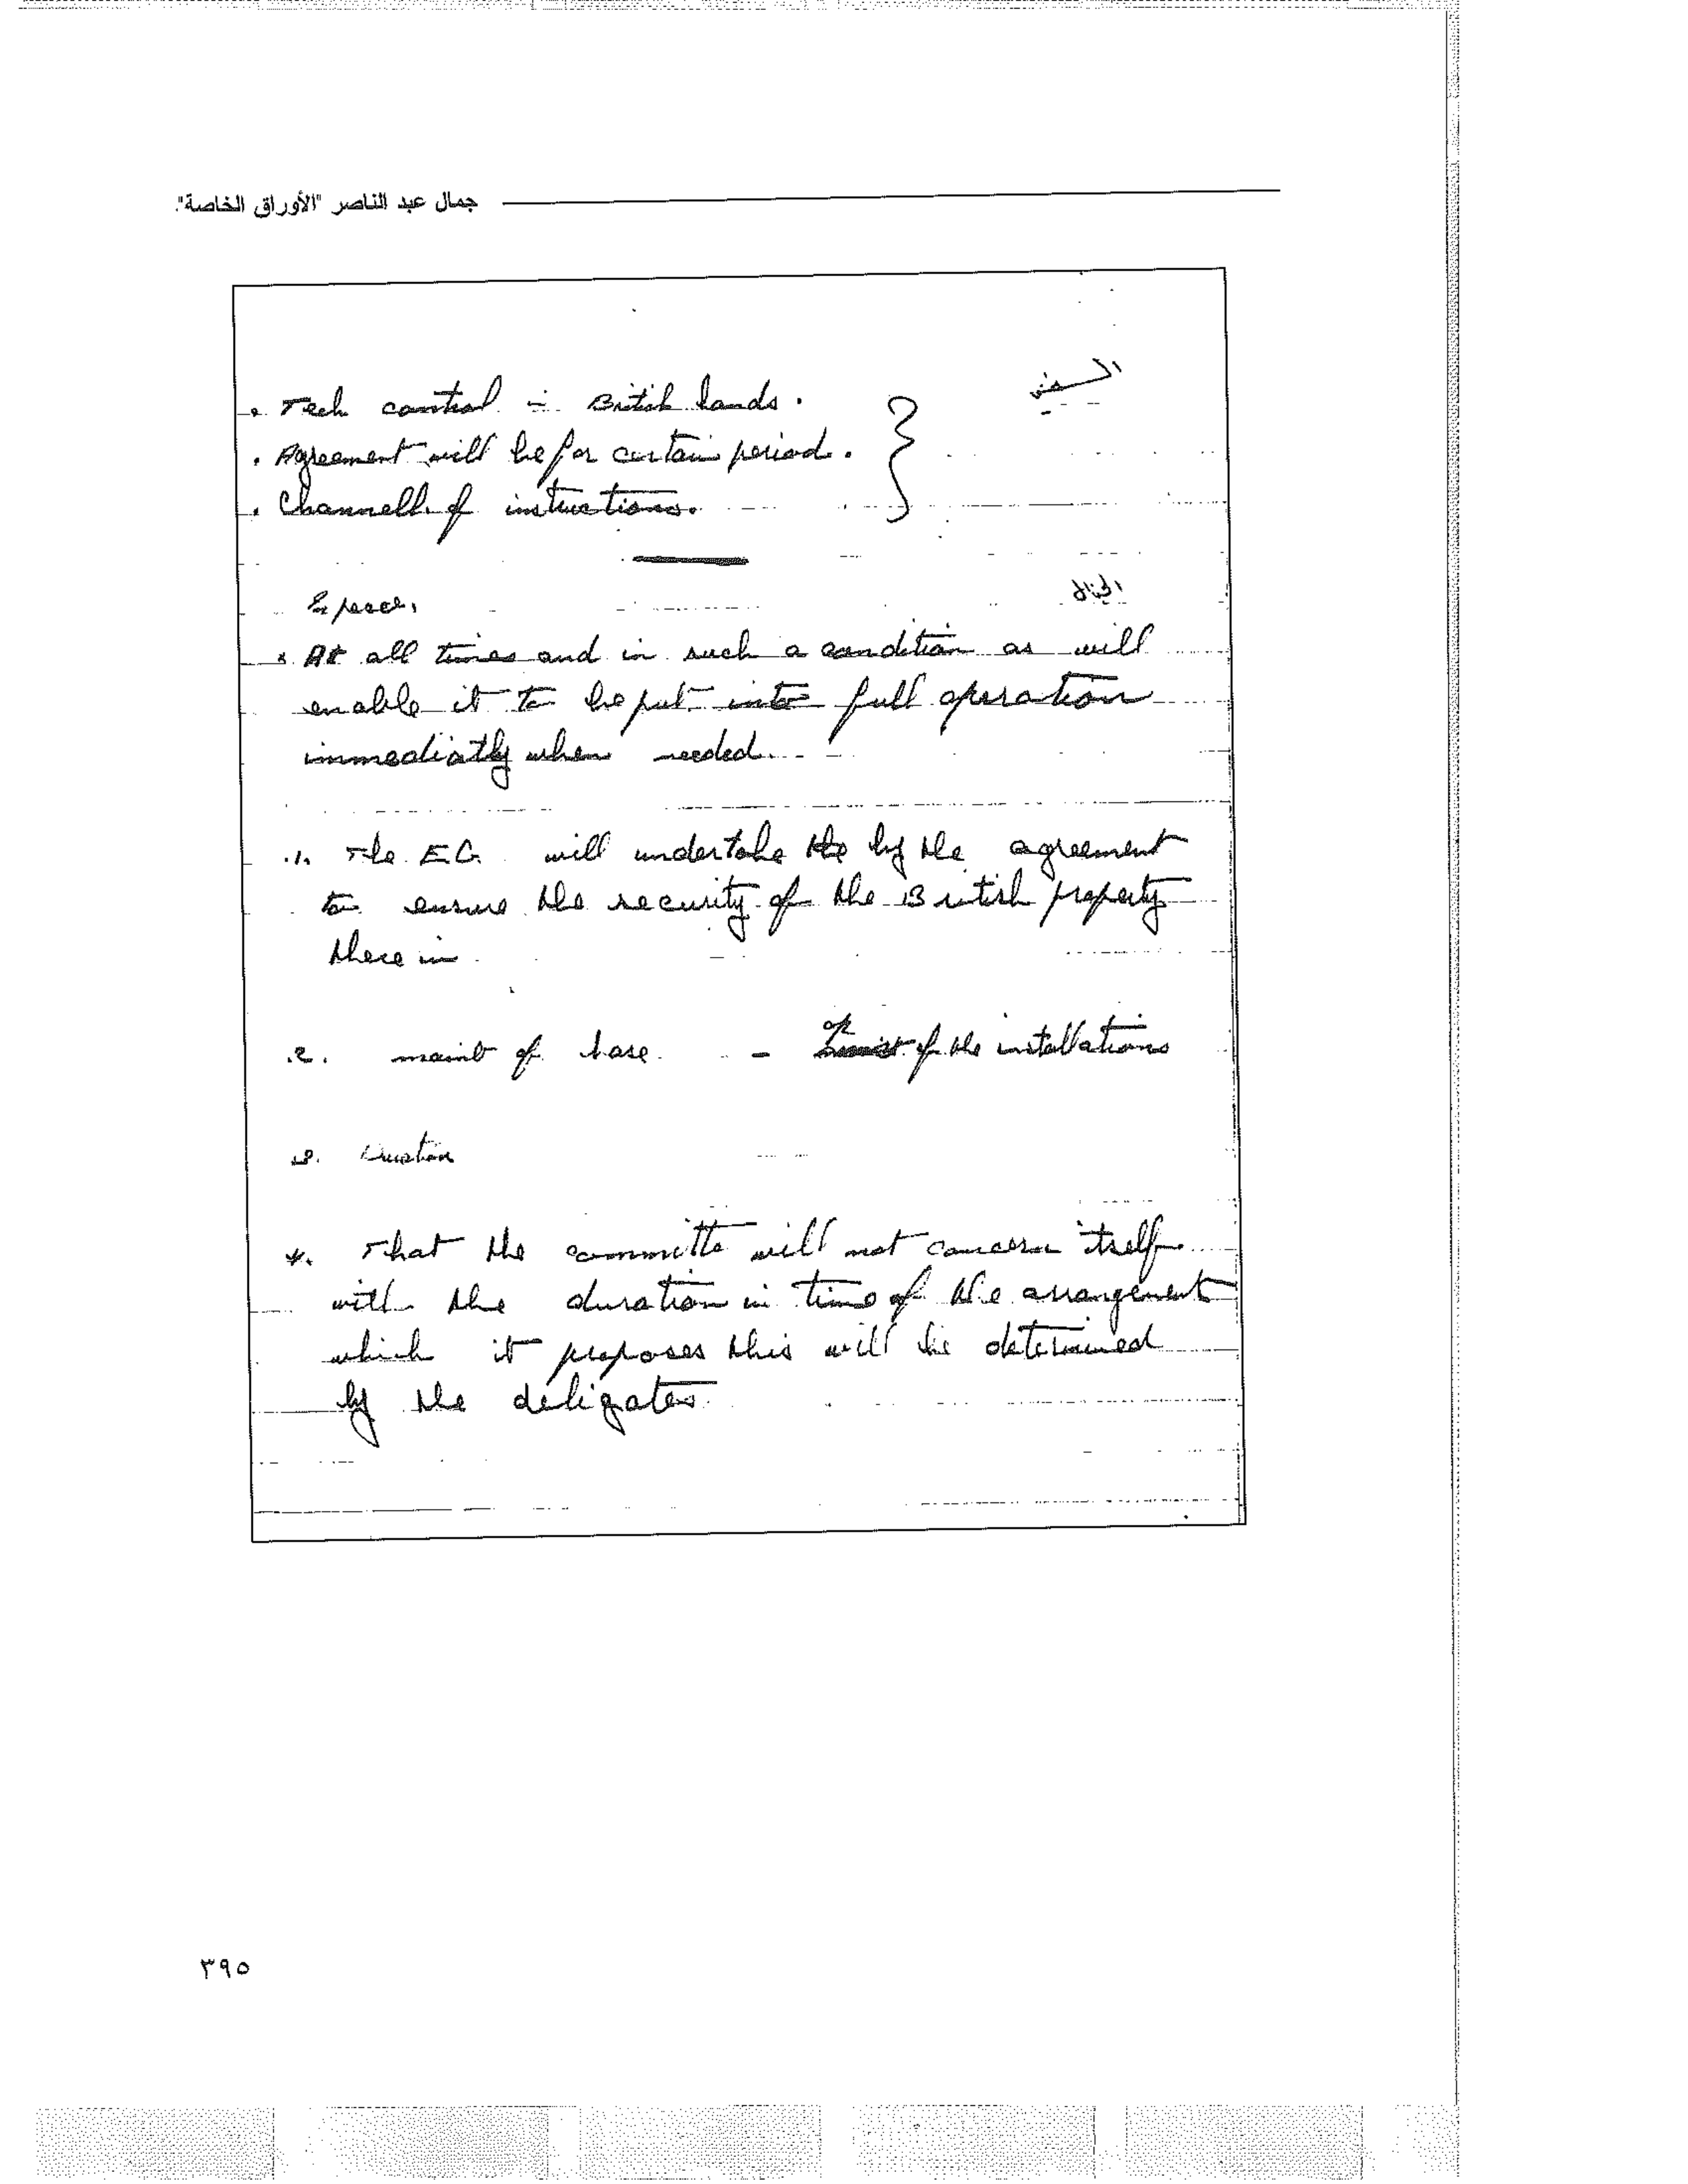 جمال عبد الناصر "الأوراق الخاصة".
السفير
. Tech control in British hands.
. Agreement will be for certain period.
. Channell of instructions.
الجنرال
In peace,
* At all times and in such a condition as will
enable it to be put into full operation
immediatly when needed.
.1. The E.G. will undertake the by the agreement
to ensure the security of the British property
there in
.2. maint of base - of the installations
3. Duration
*. That the committe will not concern itself
with the duration in time of the arrangement
which it proposes this will be determined
by the deligates
٣٩٥